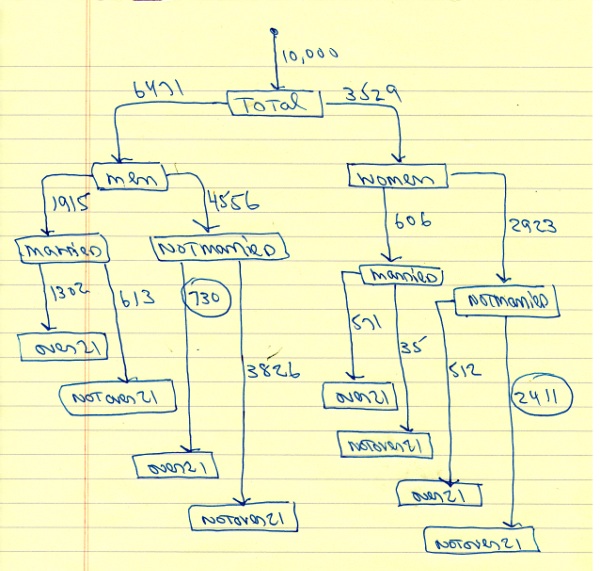 10,000
6471 TOTAL 3529
men women
1915 4556 606 2923
MARRIED NOTMARRIED MARRIED NOTMARRIED
1302 613 730 3826 571 35 512 2411
over21
NOTOVER21
over21
NOTOVER21
over21
NOTOVER21
over21
NOTOVER21